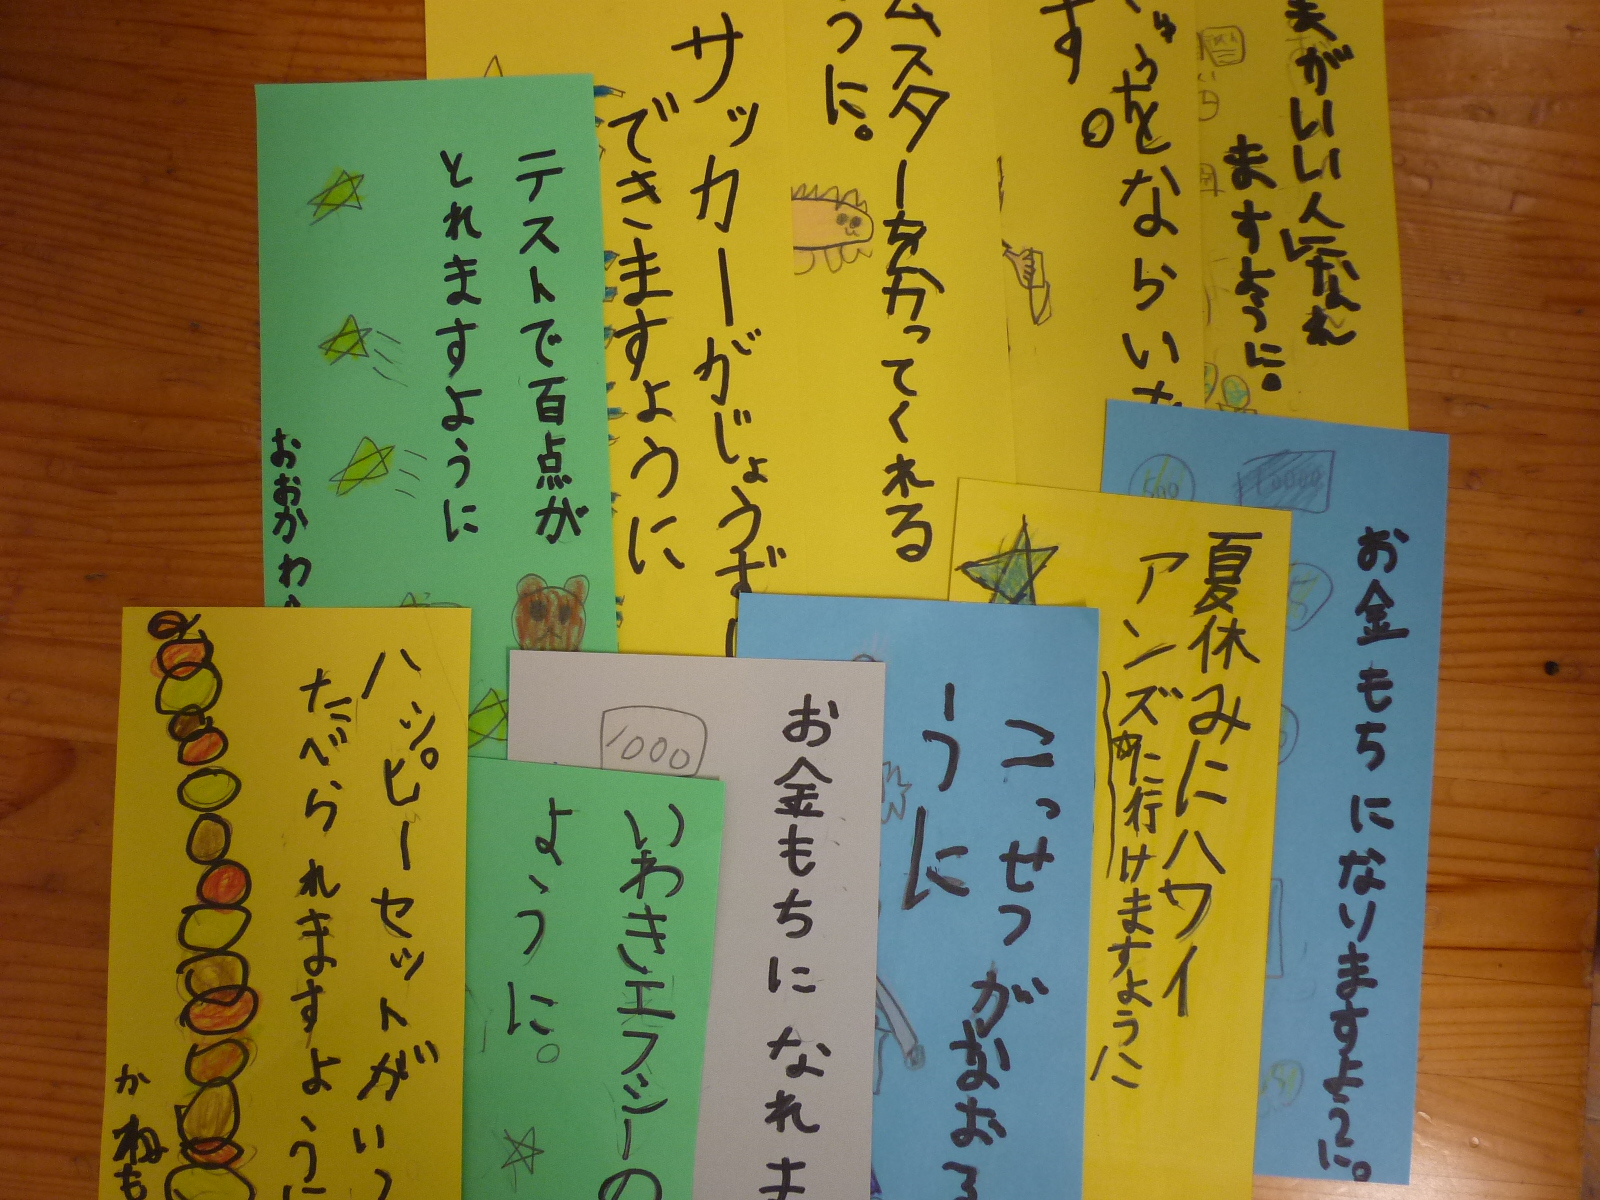 がいい人になれ
ますように。
をならいた
す。
ムスターをかってくれる
うに。
サッカーがじょうずに
できますように
テストで百点が
とれますように
おおかわ
お金もちになりますように。
10000
500
夏休みにハワイ
アンズに行けますように
こっせつがなおる
ように
お金もちになれま
1000
いわきエフシーの
ように。
ハッピーセットがいつ
たべられますように
かねも